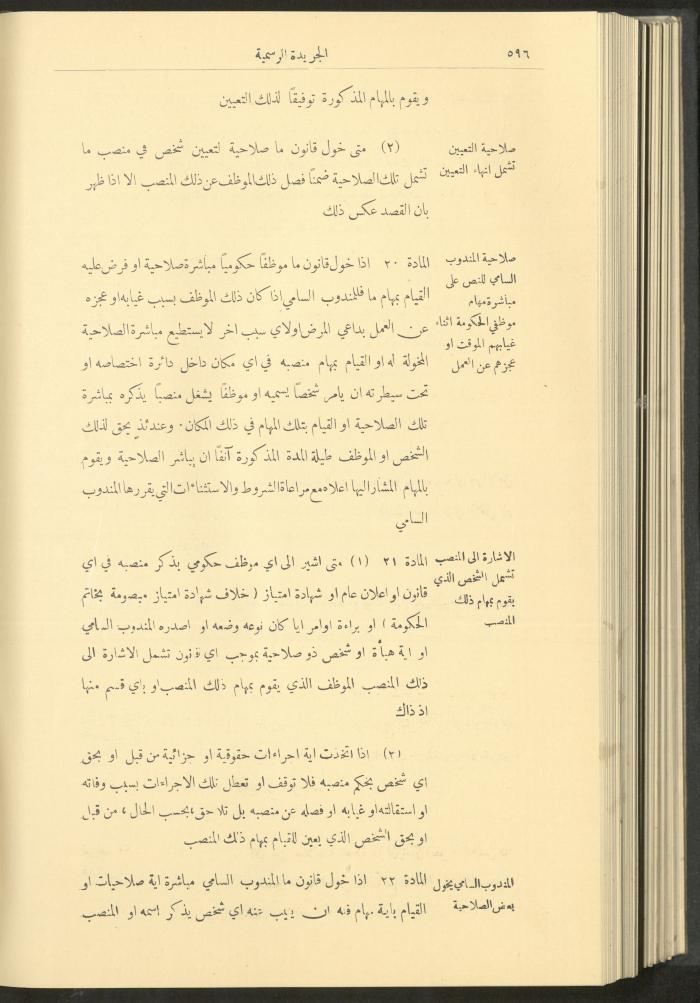 ٥٩٦
الجريدة الرسمية
ويقوم بالمهام المذكورة توفيقاً لذلك التعيين
صلاحية التعيين
تشمل انهاء التعيين
(٢) متى خول قانون ما صلاحية لتعيين شخص في منصب ما
تشمل تلك الصلاحية ضمناً فصل ذلك الموظف عن ذلك المنصب الا اذا ظهر
بان القصد عكس ذلك
صلاحية المندوب
السامي للنص على
مباشرة مهام
موظفي الحكومة اثناء
غيابهم الموقت او
عجزهم عن العمل
المادة ٢٠ اذا خول قانون ما موظفاً حكومياً مباشرة صلاحية او فرض عليه
القيام بمهام ما فللمندوب السامي اذا كان ذلك الموظف بسبب غيابه او عجزه
عن العمل بداعي المرض او لاي سبب اخر لا يستطيع مباشرة الصلاحية
المخولة له او القيام بمهام منصبه في اي مكان داخل دائرة اختصاصه او
تحت سيطرته ان يامر شخصاً يسميه او موظفاً يشغل منصباً يذكره بمباشرة
تلك الصلاحية او القيام بتلك المهام في ذلك المكان. وعندئذٍ يحق لذلك
الشخص او الموظف طيلة المدة المذكورة آنفاً ان يباشر الصلاحية ويقوم
بالمهام المشار اليها اعلاه مع مراعاة الشروط والاستثناءات التي يقررها المندوب
السامي
الاشارة الى المنصب
تشمل الشخص الذي
يقوم بمهام ذلك
المنصب
المادة ٢١ (١) متى اشير الى اي موظف حكومي بذكر منصبه في اي
قانون او اعلان عام او شهادة امتياز ( خلاف شهادة امتياز مبصومة بخاتم
الحكومة ) او براءة اوامر ايا كان نوعه وضعه او اصدره المندوب السامي
او اية هيأة او شخص ذو صلاحية بموجب اي قانون تشمل الاشارة الى
ذلك المنصب الموظف الذي يقوم بمهام ذلك المنصب او باي قسم منها
اذ ذاك
(٢) اذا اتخذت اية اجراءات حقوقية او جزائية من قبل او بحق
اي شخص بحكم منصبه فلا توقف او تعطل تلك الاجراءات بسبب وفاته
او استقالته او غيابه او فصله عن منصبه بل تلاحق، بحسب الحال، من قبل
او بحق الشخص الذي يعين للقيام بمهام ذلك المنصب
المندوب السامي يخول
بعض الصلاحية
المادة ٢٢ اذا خول قانون ما المندوب السامي مباشرة اية صلاحيات او
القيام باية مهام فله ان ينيب عنه اي شخص يذكر اسمه او المنصب